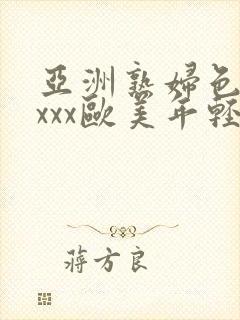 亞洲熟婦色
xxx歐美年輕
蔣方良